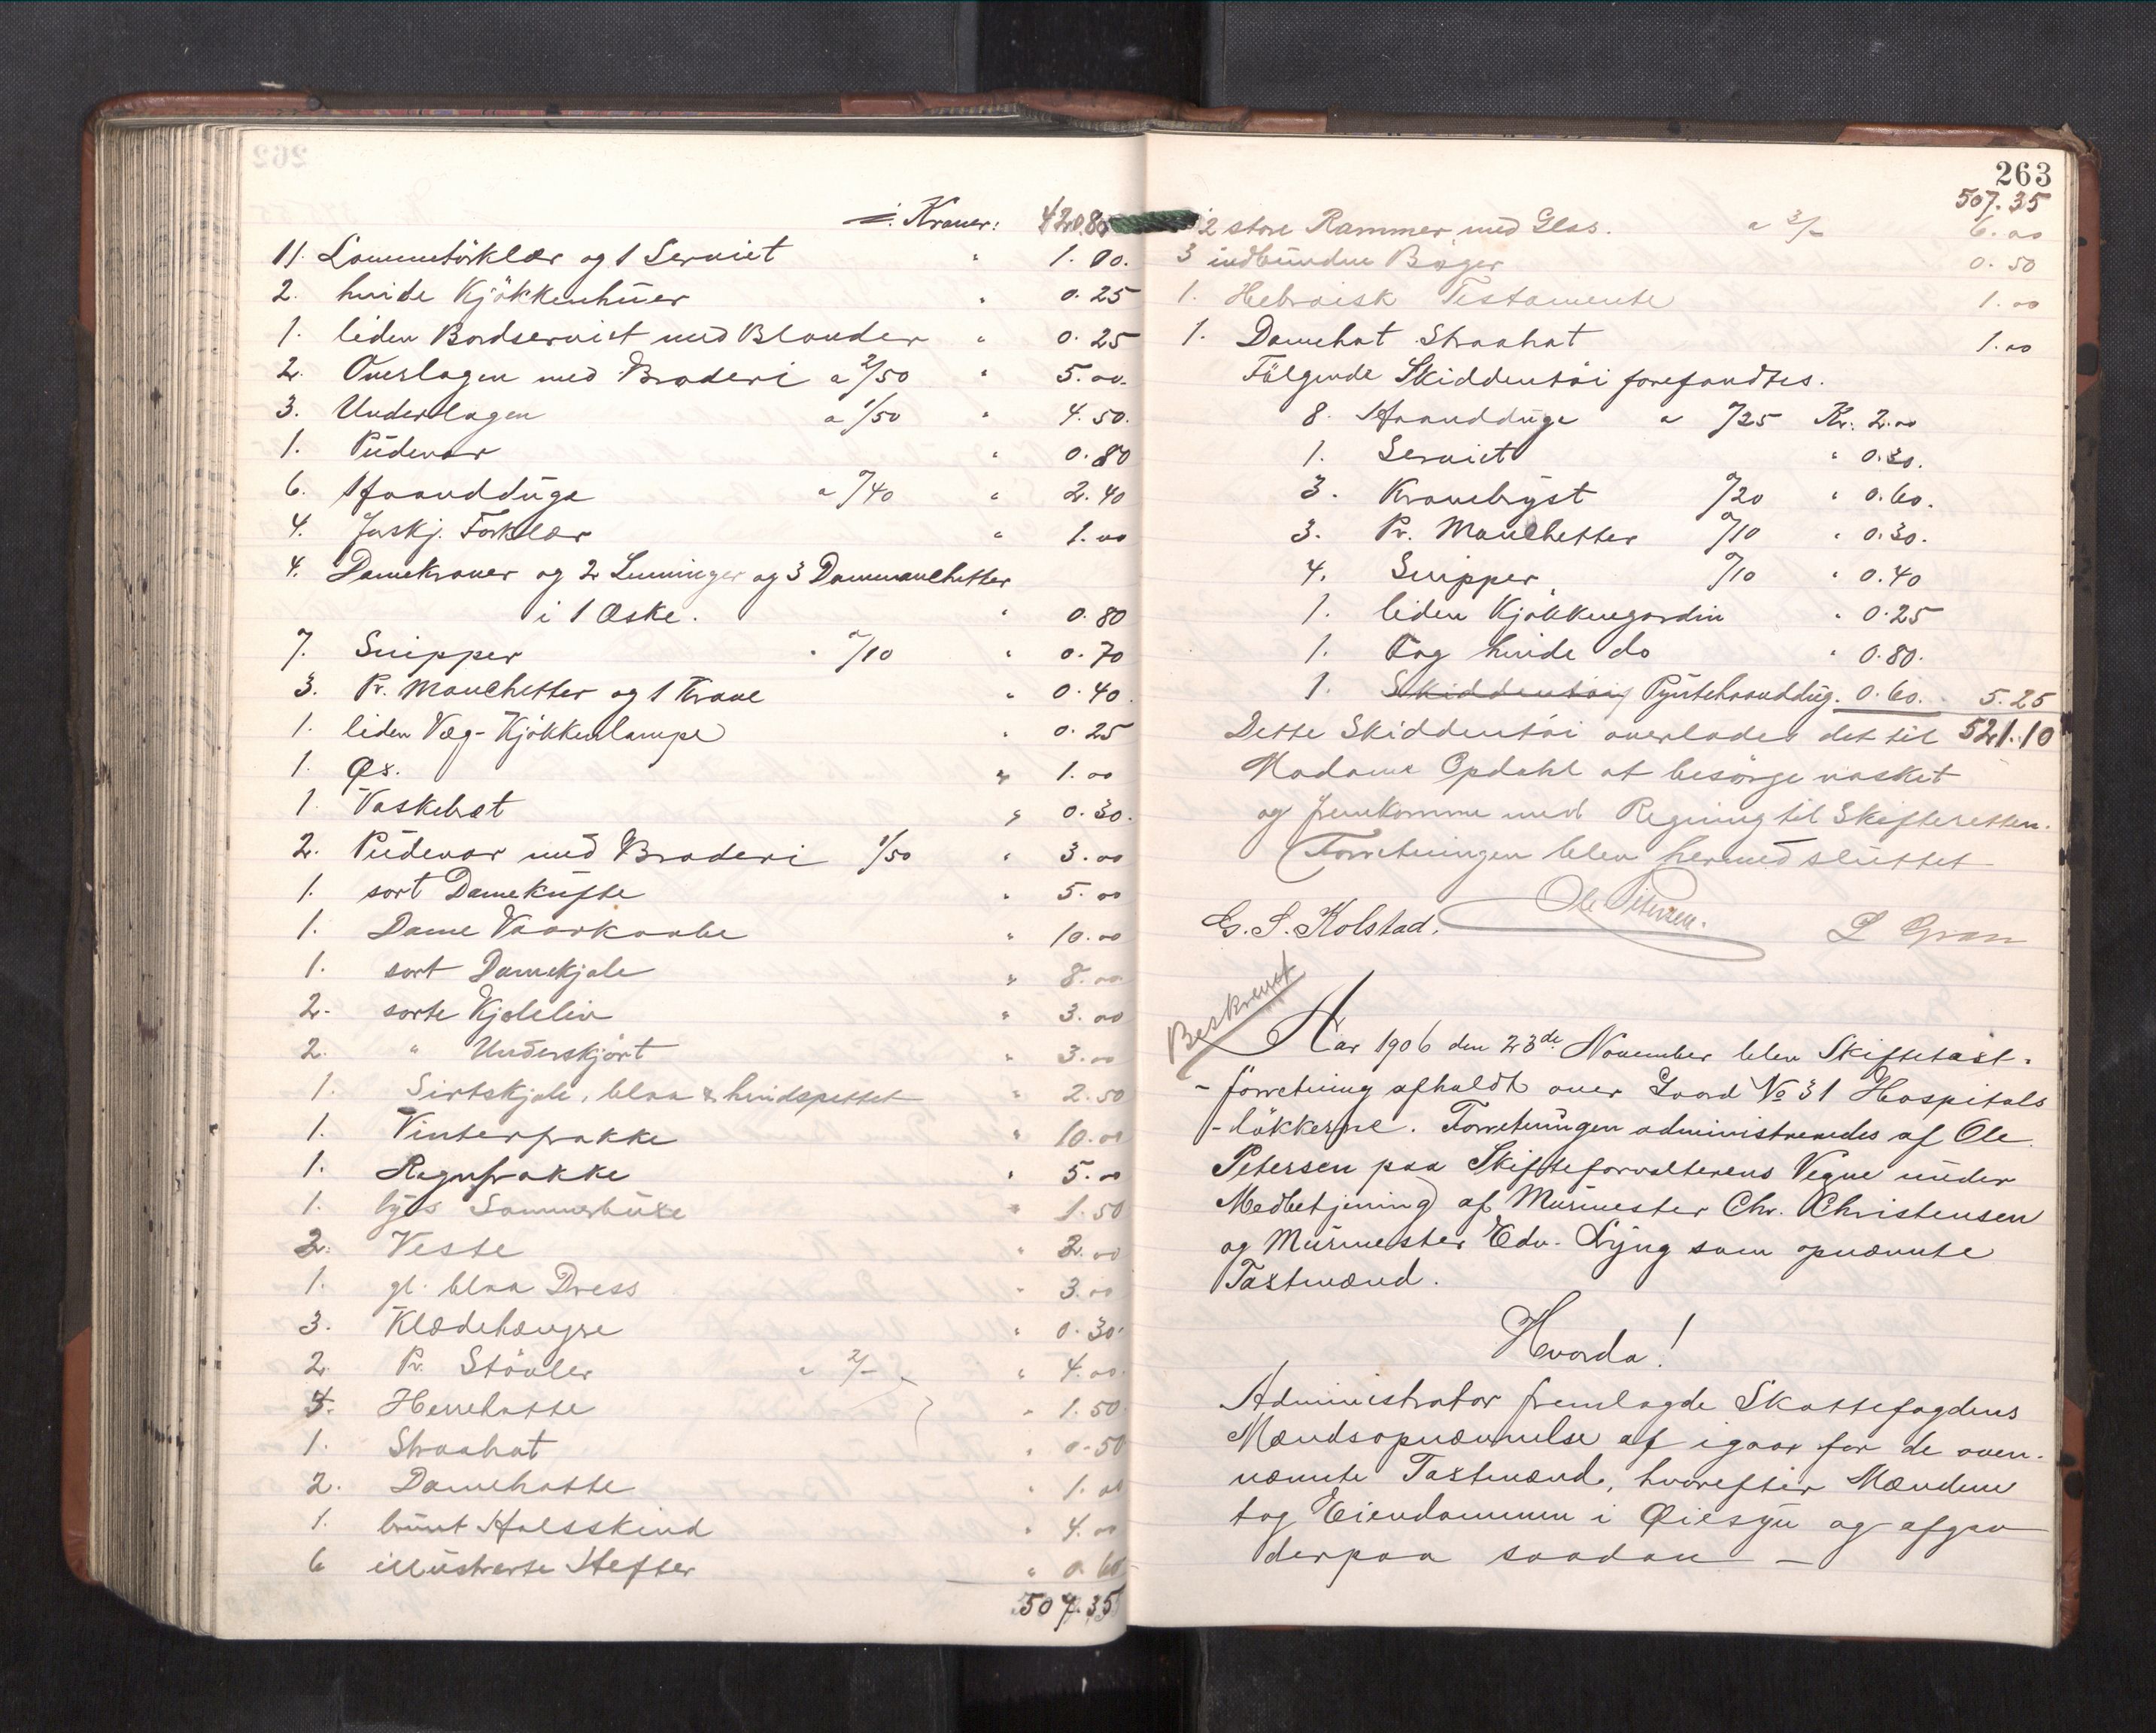 ÷. Kroner: 420.80
11. Lommetörklær og 1 Serviet " 1.00.
2. hvide Kjökkenhuer " 0.25
1. liden Bordserviet med Blonder " 0.25
2. Overlagen med Broderi a 2/50 " 5.00.
3. Underlagen a 1/50 " 4.50.
1. Pudevar " 0.80
6. Haandduge a "/40 " 2.40
4. Forklær " 1.00
4. Damekraver og 2 Linninger og 3 Damemanchetter
i 1 Æske. " 0.80
7. Snipper " "/10 " 0.70
3. Pr. Manchetter og 1 Krave " 0.40.
1. liden Væg-Kjökkenlampe " 0.25
1. Øx. " 1.00
1. Vaskebræt " 0.30.
2. Pudevar med Broderi 1/50 " 3.00
1. sort Damekufte " 5.00
1. Dame Vaarkaabe " 10.00
1. sort Damekjole " 8.00
2. sorte Kjoleliv " 3.00
2. " Underskjört " 3.00
1. Sirtskjole, blaa & hvidspettet " 2.50
1. Vinterfrakke " 10.00
1. Regnfrakke " 5.00
1. lys Sommerbuxe " 1.50
2. Veste " 2.00
1. gl. blaa Dress " 3.00
3. Klædehængre " 0.30.
2. Pr. Stövler a 2/- " 4.00.
4. Herrehatte " 1.50
1. Straahat " 0.50
2. Damehatte " 1.00
1. brunt Halsskind " 4.00
6 illustrerte Hefter " 0.60
507.35
263
507.35
2 store Rammer med Glas. a 3/- 6.00
3 indbundne Bøger 0.50
1. Hebraisk Testamente 1.00
1. Damehat Straahat 1.00
Fölgende Skiddentöi forefandtes.
8. Haandduge a "/25 Kr. 2.00
1. Serviet " 0.30.
3. Kravebryst "/20 " 0.60.
3. Pr. Manchetter "/10 " 0.30.
4. Snipper "/10 " 0.40
1. liden Kjökkengardin " 0.25
1. Fag hvide do " 0.80.
1. Skiddentöi Pyntehaanddug. 0.60. 5.25
Dette Skiddentöi overlades det til 521.10
Madame Opdahl at besörge vasket
og fremkomme med Regning til Skifteretten.
Forretningen blev hermed sluttet
Ole Petersen.
G. S. Kolstad. L Gran
Beskrevet
Aar 1906 den 23de November blev Skiftetaxt-
-forretning afholdt over Gaard No 31 Hospitals
-lökkerne. Forretningen administreredes af Ole
Petersen paa Skifteforvalterens Vegne under
Medbetjening af Murmester Chr. Christensen
og Murmester Edv. Lyng som opnævnte
Taxtmænd.
Hvorda!
Administrator fremlagde Skattefogdens
Mændsopnævnelse af igaar for de oven-
nævnte Taxtmænd, hvorefter Mændene
tog Eiendommen i Øiesyn og afgav
derpaa saadan —